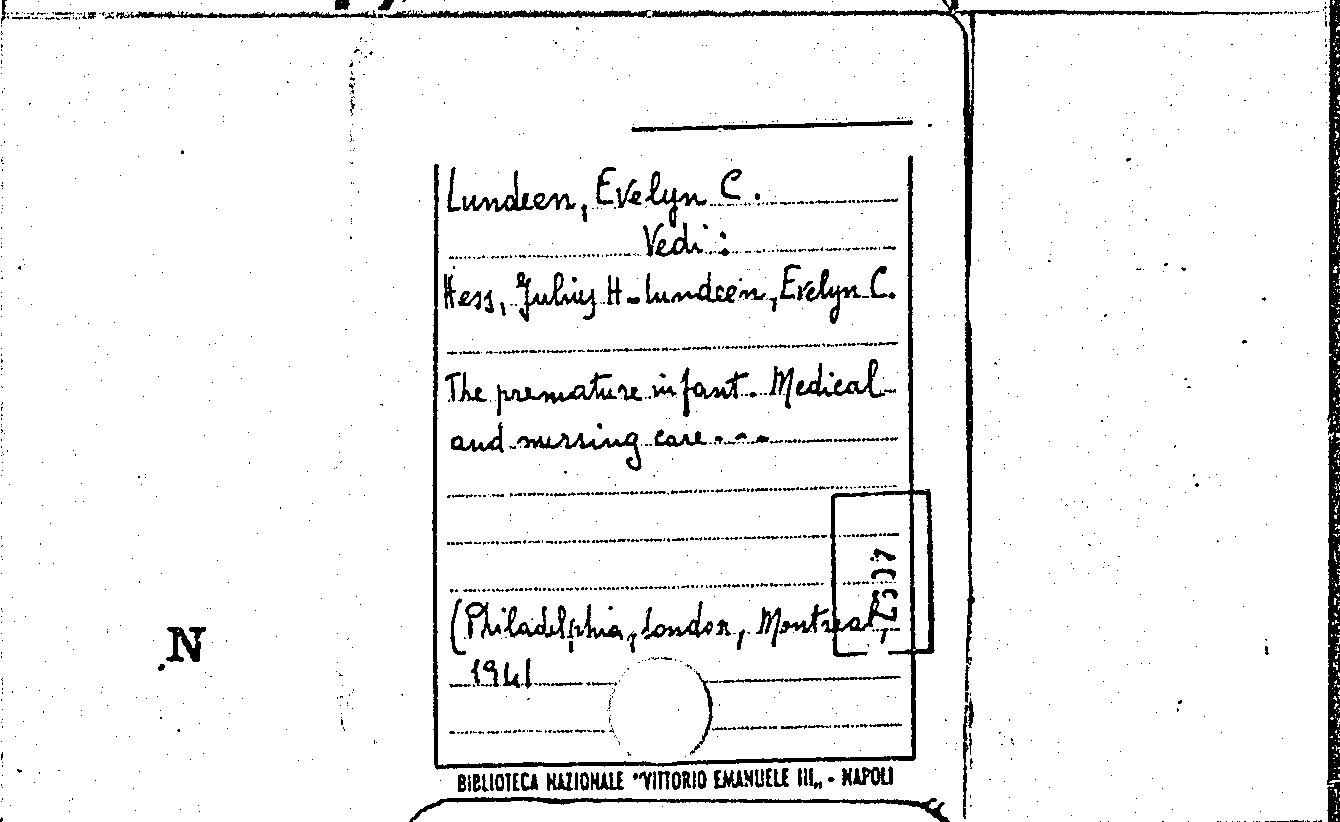 Lundeen, Evelyn C.
Vedi:
Hess, Julius H-Lundeen, Evelyn C.
The premature infant. Medical
and nursing care...
(Philadelphia, London, Montreal,
1941
N
BIBLIOTECA NAZIONALE "VITTORIO EMANUELE III„ - NAPOLI